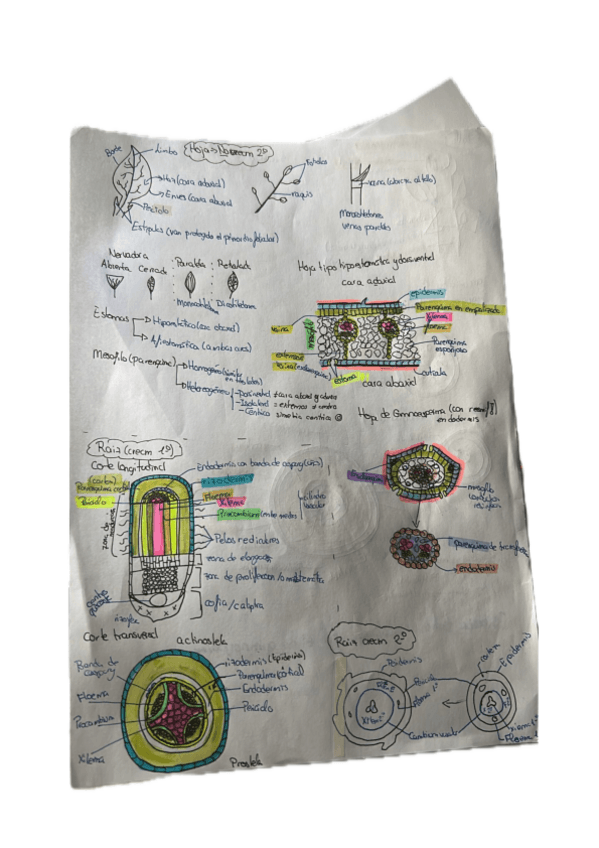 Hoja → No crecm 2º
Borde
Limbo
Haz (cara adaxial)
Envés (cara abaxial)
Pecíolo
Estípulas (van protegido el primordio foliar)
Foliolos
raquis
vaina (abraza al tallo)
Monocotiledoneas
venas paralelas
Nervadura
Abierta Cerrada Paralela Reticulada
Monocotiledo Dicotiledonea
Estomas
Hipoestomática (cara abaxial)
Anfiestomática (ambas caras)
Mesofilo (parenquima)
Homogéneo
Heterogéneo
Dorsiventral ≠ cara abaxial y adaxial
Isolateral = extremos ≠ centro
Céntrico simetria centrica
Hoja tipo hipoestomatica y dorsiventral
cara adaxial
epidermis
Parenquima en empalizada
Xilema
Floema
Parenquima esponjoso
vaina
mesofilo
extension
vaina
estoma
cutícula
cara abaxial
Hoja de Gimnosperma (con crecm 1º)
endodermis
mesofilo
parenquima de transfusión
endodermis
Raíz (crecm 1º)
Corte longitudinal
(cortex)
Parenquima cortical
Periciclo
Endodermis con banda de caspary
rizodermis
Floema
Xilema
Procambium
cilindro
vascular
Pelos radiculares
zona de elongación
zona de proliferacion o meristematica
cofia / caliptra
centro
quiescente
Corte transversal actinostela
Banda de
caspary
Floema
Procambium
Xilema
rizodermis (Epidermis)
Parenquima cortical
Endodermis
Periciclo
Protostela
Raiz crecm 2º
Peridermis
Periciclo
Floema 1º
Xilema
Cambium vascular
cortex
Epidermis
Floema 1º